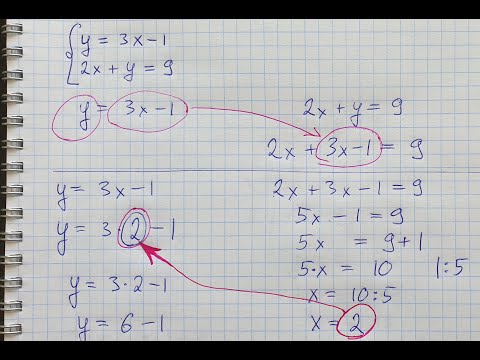 y = 3x-1
2x + y = 9
y = 3x-1
2x + y = 9
2x + 3x-1 = 9
y = 3x-1
y = 3 · 2 -1
y = 3·2-1
y = 6-1
2x + 3x -1 = 9
5x -1 = 9
5x = 9+1
5·x = 10 |:5
x = 10:5
x = 2